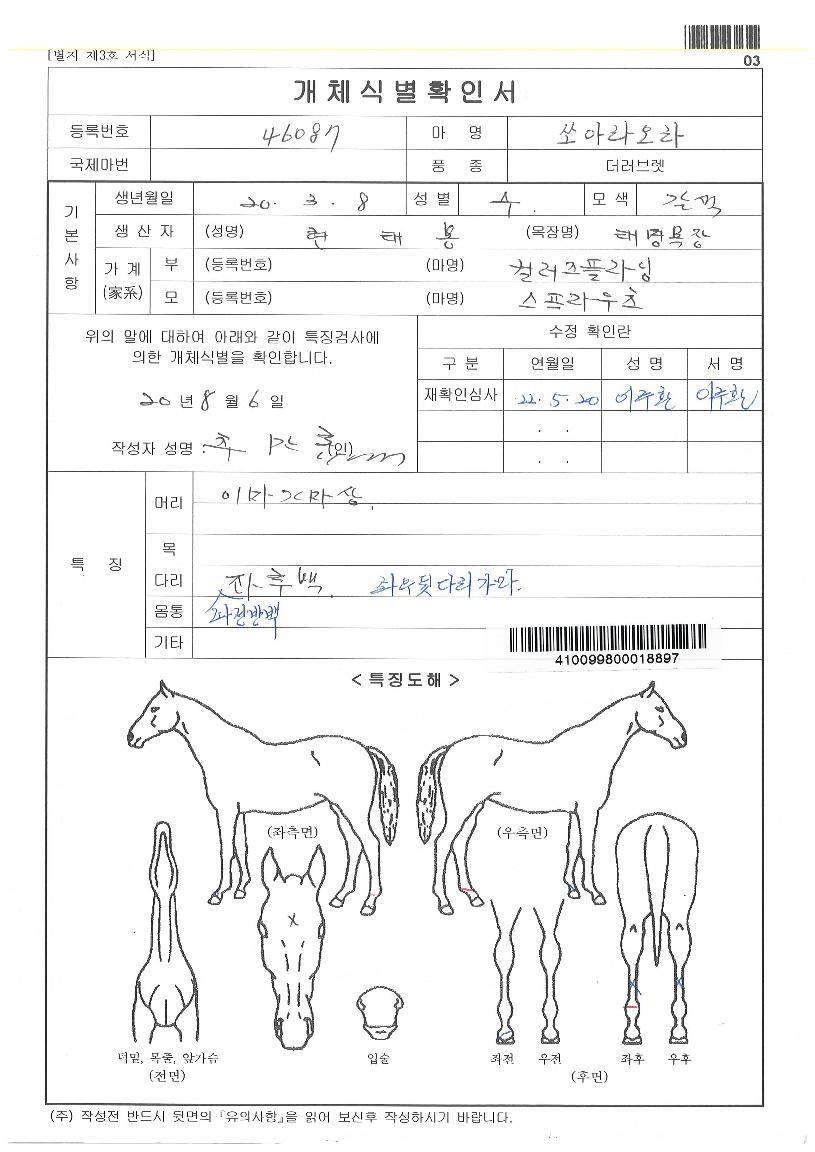 [별지 제3호 서식]
03
개체식별확인서
등록번호 46087 마 명 쏘아라오라
국제마번 품 종 더러브렛
기본사항
생년월일 20. 3. 8 성별 수. 모색 갈색
생 산 자 (성명) 현 태 용 (목장명) 태명목장
가 계 (家系)
부 (등록번호) (마명) 컬러즈플라잉
모 (등록번호) (마명) 스프라우츠
위의 말에 대하여 아래와 같이 특징검사에
의한 개체식별을 확인합니다.
20 년 8 월 6 일
작성자 성명 : (인)
수정 확인란
구 분 연월일 성 명 서 명
재확인심사 22. 5. 20 이주환 이주환
. .
. .
특 징
머리 이마가마상.
목
다리 좌후백. 좌우뒷다리가마.
좌전방백
몸통
기타
410099800018897
< 특징도해 >
(좌측면) (우측면)
턱밑, 목줄, 앞가슴
(전면)
입술
좌전 우전 좌후 우후
(후면)
(주) 작성전 반드시 뒷면의 『유의사항』을 읽어 보신후 작성하시기 바랍니다.